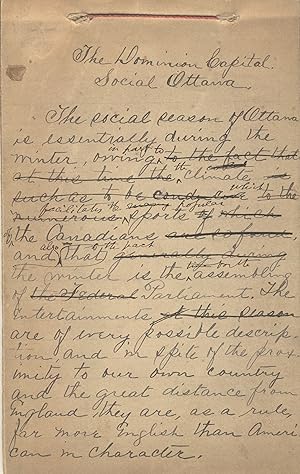 The Dominion Capital.
Social Ottawa
The social season of Ottawa
is essentially during the
in part to
winter, owing to the fact that
at this time the climate is
which
such as to be to the
facilitates of many popular
numerous sports of which
the Canadians
also to the fact
and that generally during
the winter is the assembling
of the Federal Parliament. The
entertainments at this season
are of every possible descrip-
tion and in spite of the prox-
imity to our own country
and the great distance from
England they are, as a rule,
far more English than Ameri
can in character.